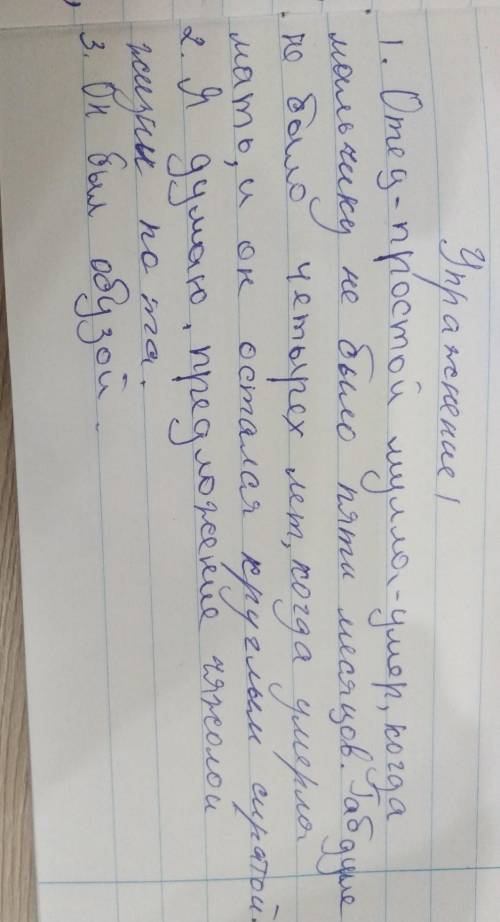 Упражнение 1
1. Отец-простой мулла-умер, когда
мальчику не было пяти месяцов. Габдуле
не было четырех лет, когда умерла
мать, и он остался круглым сиратой.
2. Я думаю, предложение тяжолои
жизни поэта.
3. Он был обузой.